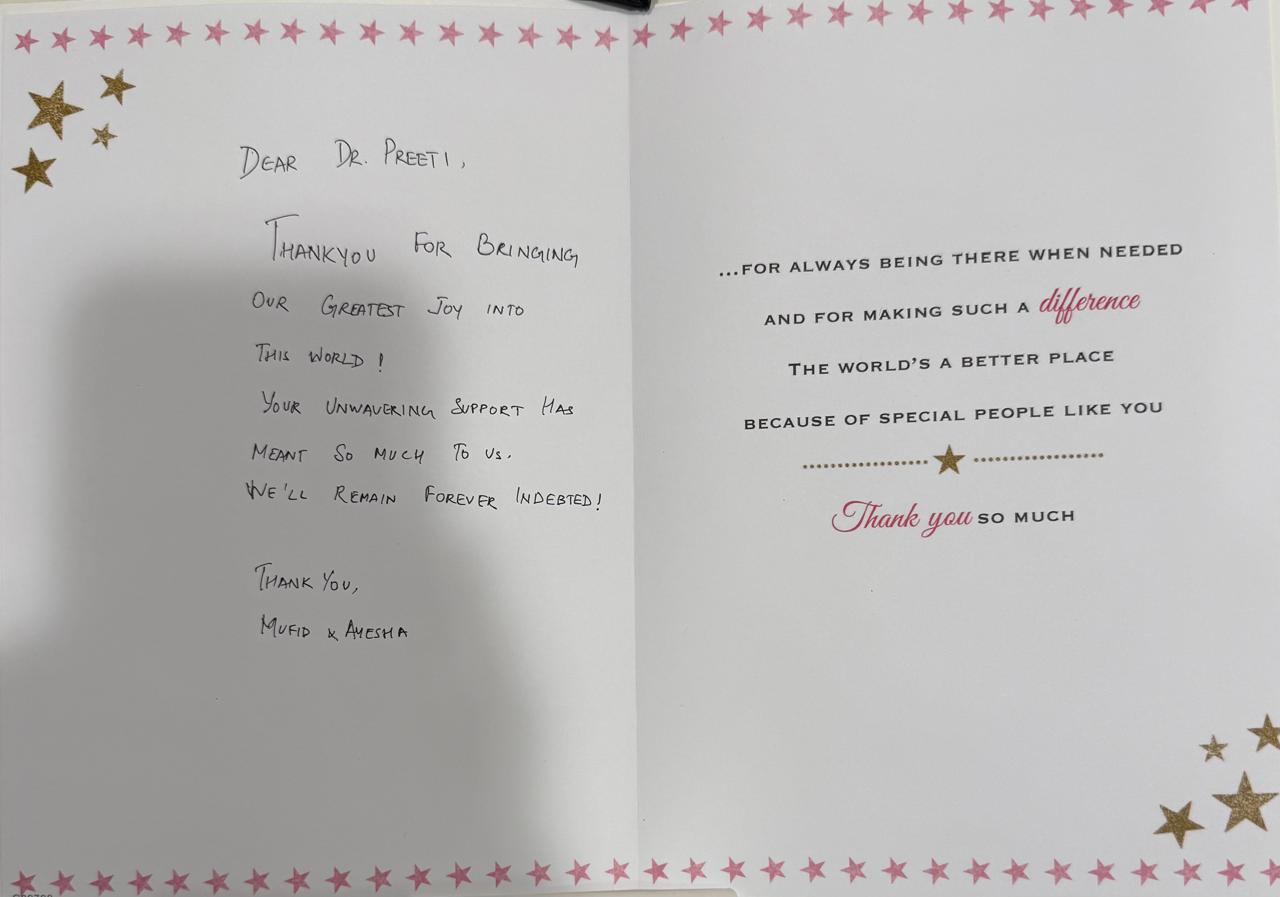 DEAR DR. PREETI,
THANKYOU FOR BRINGING
OUR GREATEST JOY INTO
THIS WORLD!
YOUR UNWAVERING SUPPORT HAS
MEANT SO MUCH TO US.
WE'LL REMAIN FOREVER INDEBTED!
THANK YOU,
MUFID & AYESHA
...FOR ALWAYS BEING THERE WHEN NEEDED
AND FOR MAKING SUCH A difference
THE WORLD'S A BETTER PLACE
BECAUSE OF SPECIAL PEOPLE LIKE YOU
Thank you SO MUCH